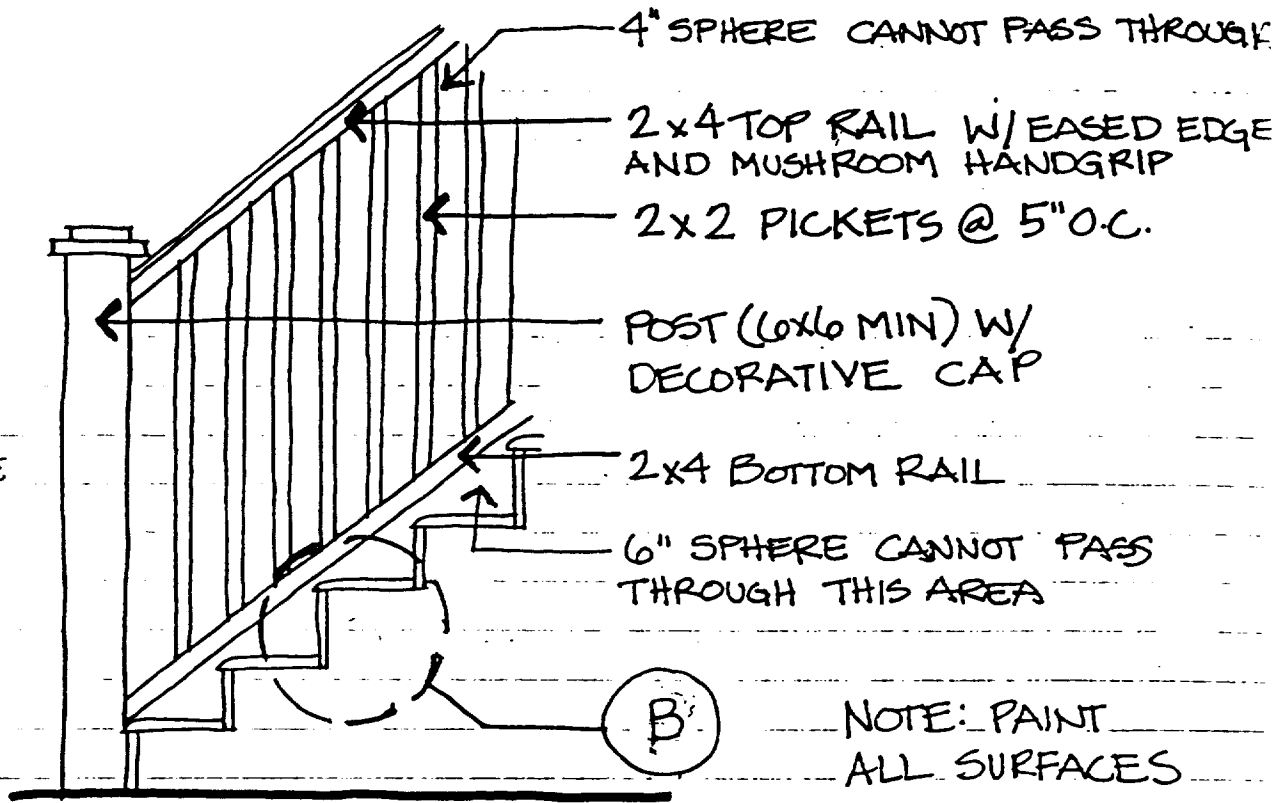 4" SPHERE CANNOT PASS THROUGH
2x4 TOP RAIL W/ EASED EDGE
AND MUSHROOM HANDGRIP
2x2 PICKETS @ 5" O.C.
POST (6x6 MIN) W/
DECORATIVE CAP
E
2x4 BOTTOM RAIL
6" SPHERE CANNOT PASS
THROUGH THIS AREA
B
NOTE: PAINT
ALL SURFACES